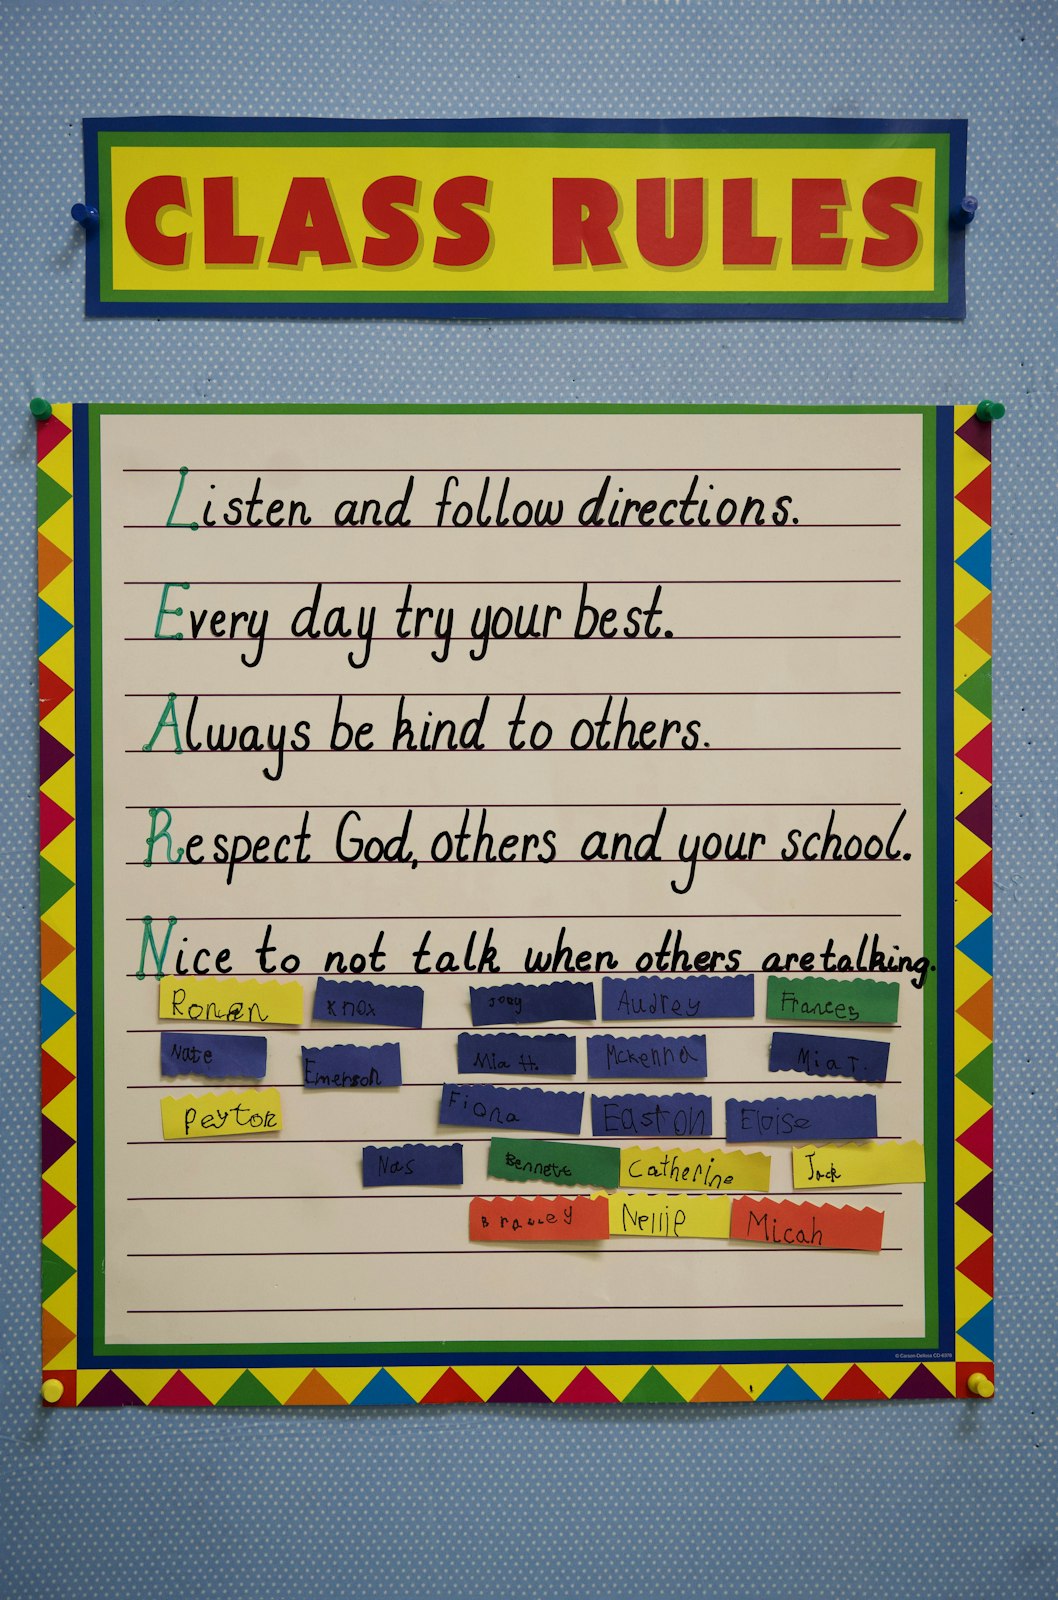 CLASS RULES
Listen and follow directions.
Every day try your best.
Always be kind to others.
Respect God, others and your school.
Nice to not talk when others are talking.
Ronan Knox Joey Audrey Frances
Nate Emerson Mia H. Mckenna Mia T.
Peyton Fiona Easton Eloise
Nas Bennett Catherine Jack
Nellie Micah
© Carson-Dellosa CD-6370